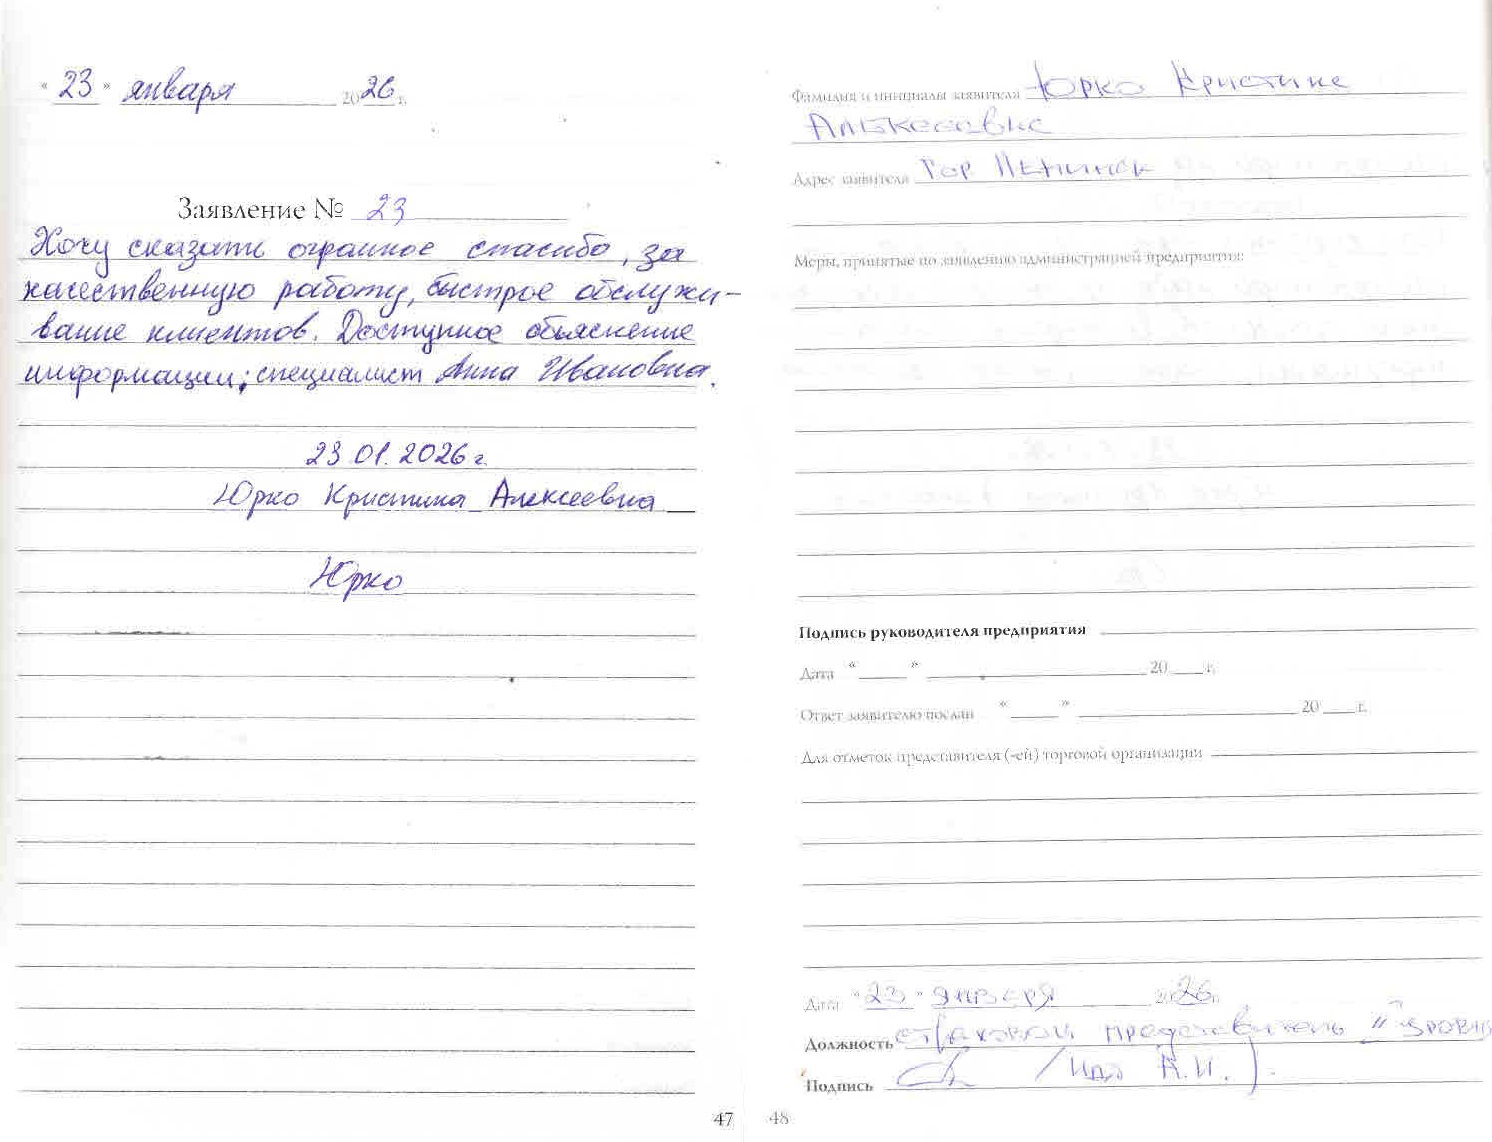 "23" января 2026 г.
Заявление № 23
Хочу сказать огромное спасибо, за
качественную работу, быстрое обслужи-
вание клиентов. Доступное объяснение
информации; специалист Анна Ивановна.
23.01.2026 г.
Юрко Кристина Алексеевна
Юрко
47
Фамилия и инициалы заявителя Юрко Кристине
Алексеевне
Адрес заявителя гор
Меры, принятые по заявлению администрацией предприятия:
Подпись руководителя предприятия
Дата " " 20 г.
Ответ заявителю послан " " 20 г.
Для отметок представителя (-ей) торговой организации
Дата "23" января 2026 г.
Должность страховой представитель II
Подпись А.И. )
48